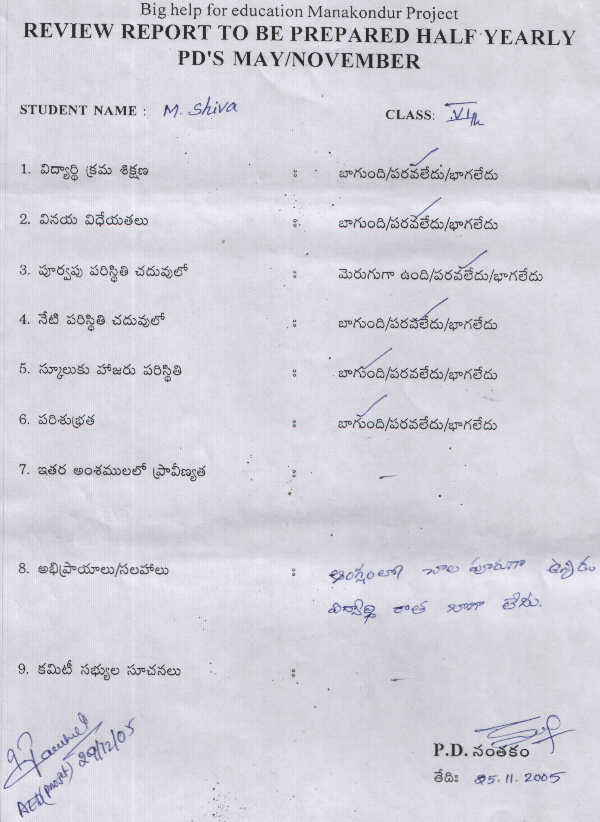 Big help for education Manakondur Project
REVIEW REPORT TO BE PREPARED HALF YEARLY
PD'S MAY/NOVEMBER
STUDENT NAME : M. Shiva CLASS: VIth
1. విద్యార్థి క్రమ శిక్షణ : బాగుంది/పరవలేదు/భాగలేదు
2. వినయ విధేయతలు : బాగుంది/పరవలేదు/భాగలేదు
3. పూర్వపు పరిస్థితి చదువులో : మెరుగుగా ఉంది/పరవలేదు/భాగలేదు
4. నేటి పరిస్థితి చదువులో : బాగుంది/పరవలేదు/భాగలేదు
5. స్కూలుకు హాజరు పరిస్థితి : బాగుంది/పరవలేదు/భాగలేదు
6. పరిశుభ్రత : బాగుంది/పరవలేదు/భాగలేదు
7. ఇతర అంశములలో ప్రావీణ్యత : –
8. అభిప్రాయాలు/సలహాలు : ఆంగ్లంలో చాల పూరుగా
విద్యార్థి రాత బాగా లేదు.
9. కమిటీ సభ్యుల సూచనలు : –
29/12/05
P.D. సంతకం
తేదిః 25.11.2005